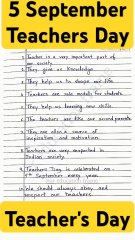 5 September
Teachers Day
1. Teacher is a very important part of
our society.
2. They give us knowledge.
3. They help us to shape our life.
4. Teachers are role models for students.
5. They help us learning new skills.
6. The teachers are like our second parents.
7. They are also a source of
inspiration and motivation.
8. Teachers are very respected in
Indian society.
9. Teachers Day is celebrated on
5th September every year.
10. We should always obey and
respect our teachers.
Teacher's Day